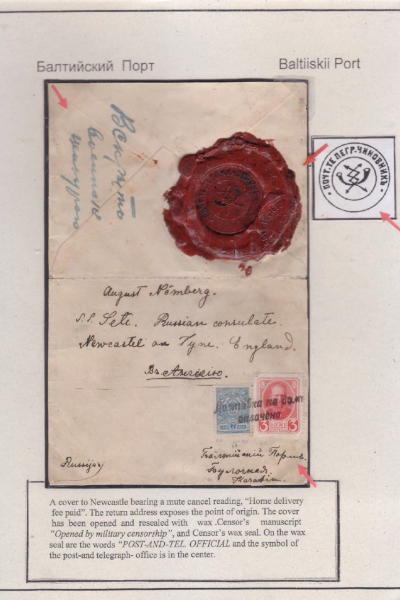 Балтийский Порт
Baltiiskii Port
Вскрыто
военной
цензурой
ПОЧТ.ТЕЛЕГР.ЧИНОВНИКЪ
August Nömberg.
S.S. Sete. Russian consulate.
Newcastel on Tyne. England.
Въ Англію.
Доставка на домъ
оплочена.
3 3
Russijx
Балтійскій Портъ
Булочная
A cover to Newcastle bearing a mute cancel reading, "Home delivery
fee paid". The return address exposes the point of origin. The cover
has been opened and resealed with wax .Censor's manuscript
"Opened by military censorship", and Censor's wax seal. On the wax
seal are the words "POST-AND-TEL. OFFICIAL and the symbol of
the post-and telegraph- office is in the center.